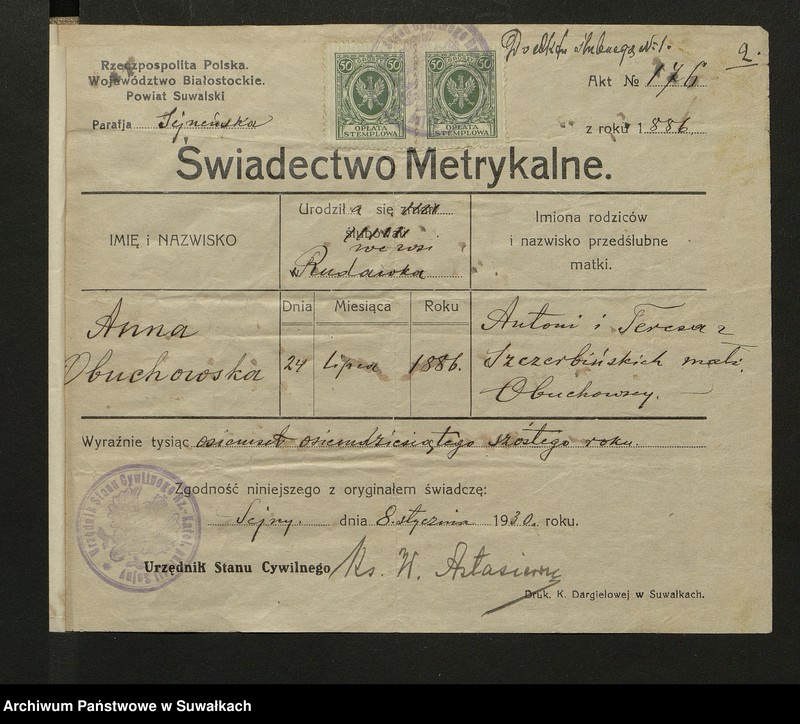 Do alktu ślubnego № 1.
2.
Rzeczpospolita Polska.
Województwo Białostockie.
Powiat Suwalski
Parafja Sejneńska
50 50
OPŁATA STEMPLOWA
50 50
OPŁATA STEMPLOWA
Akt № 176
z roku 1886
Świadectwo Metrykalne.
IMIĘ i NAZWISKO
Urodził a się
we wsi
Rudawka
Imiona rodziców
i nazwisko przedślubne
matki.
Dnia Miesiąca Roku
Anna
Obuchowska
24 Lipca 1886.
Antoni i Teresa z
Szczerbińskich małż.
Obuchowscy.
Wyraźnie tysiąc osiemset osiemdziesiątego szóstego roku.
Zgodność niniejszego z oryginałem świadczę:
Sejny. dnia 8. stycznia 1930. roku.
Urzędnik Stanu Cywilnego Ks. W. Astasiewicz
Urzędnik Stanu Cywilnego Rz.-Katol. Parafji Sejny
Druk. K. Dargielowej w Suwałkach.
Archiwum Państwowe w Suwałkach